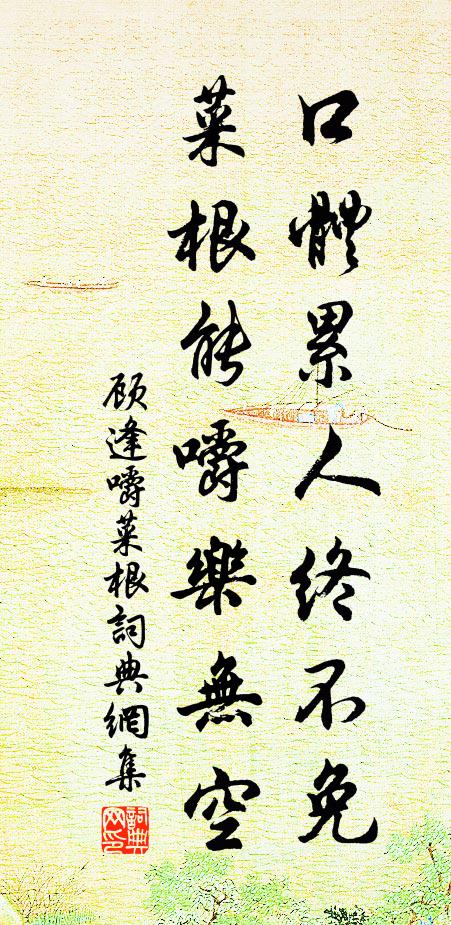 口體累人終不免
菜根能嚼樂無空
顧逢嚼菜根詞典網集
詞典
网印